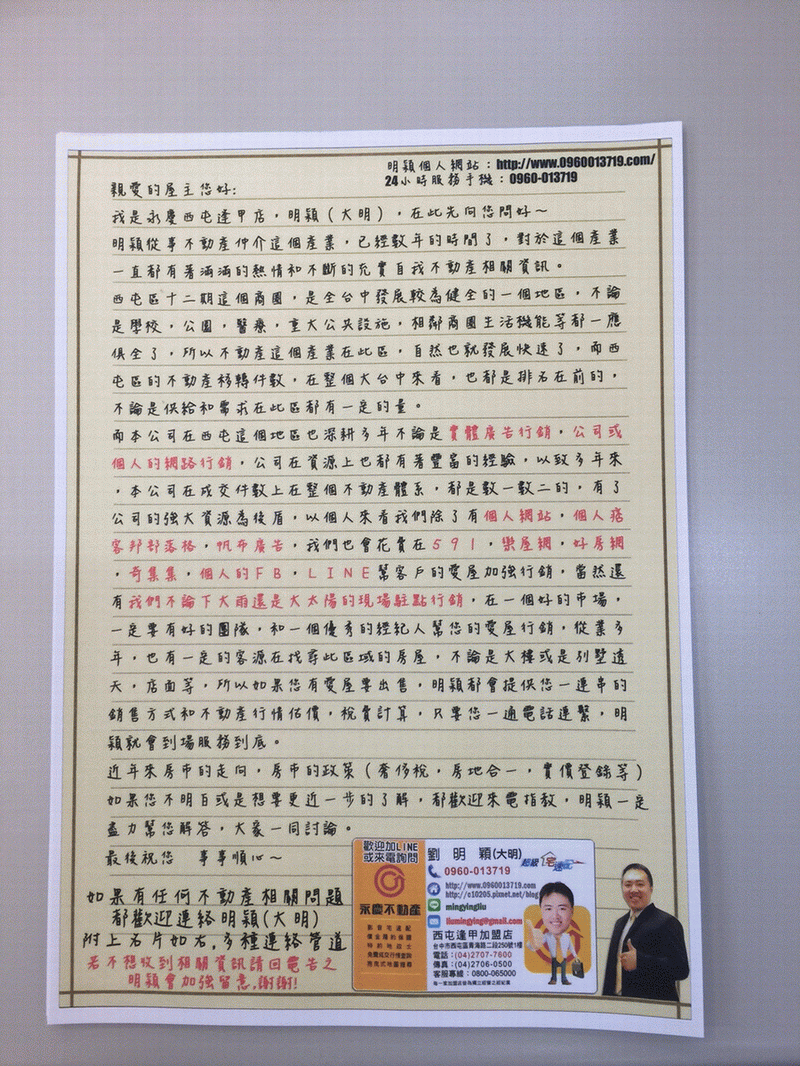 明穎個人網站：http://www.0960013719.com/
24小時服務手機：0960-013719
親愛的屋主您好：
我是永慶西屯逢甲店，明穎（大明），在此先向您問好～
明穎從事不動產仲介這個產業，已經數年的時間了，對於這個產業
一直都有著滿滿的熱情和不斷的充實自我不動產相關資訊。
西屯區十二期這個商圈，是全台中發展較為健全的一個地區，不論
是學校，公園，醫療，重大公共設施，相鄰商圈生活機能等都一應
俱全了，所以不動產這個產業在此區，自然也就發展快速了，而西
屯區的不動產移轉件數，在整個大台中來看，也都是排名在前的，
不論是供給和需求在此區都有一定的量。
而本公司在西屯這個地區也深耕多年不論是實體廣告行銷，公司或
個人的網路行銷，公司在資源上也都有著豐富的經驗，以致多年來
，本公司在成交件數上在整個不動產體系，都是數一數二的，有了
公司的強大資源為後盾，以個人來看我們除了有個人網站，個人痞
客邦部落格，帆布廣告，我們也會花費在591，樂屋網，好房網
，奇集集，個人的FB，LINE幫客戶的愛屋加強行銷，當然還
有我們不論下大雨還是大太陽的現場駐點行銷，在一個好的市場，
一定要有好的團隊，和一個優秀的經紀人幫您的愛屋行銷，從業多
年，也有一定的客源在找尋此區域的房屋，不論是大樓或是別墅透
天，店面等，所以如果您有愛屋要出售，明穎都會提供您一連串的
銷售方式和不動產行情估價，稅費計算，只要您一通電話連繫，明
穎就會到場服務到底。
近年來房市的走向，房市的政策（奢侈稅，房地合一，實價登錄等）
如果您不明白或是想要更近一步的了解，都歡迎來電指教，明穎一定
盡力幫您解答，大家一同討論。
最後祝您 事事順心～
如果有任何不動產相關問題
都歡迎連絡明穎(大明)
附上名片如右，多種連絡管道
若不想收到相關資訊請回電告之
明穎會加強留意，謝謝！
歡迎加LINE
或來電詢問
永慶不動產
影音宅速配
免費成交行情查詢
劉 明 穎(大明)
超級宅速配
0960-013719
http://www.0960013719.com
http://c10205.pixnet.net/blog
mingyingliu
liumingying@gmail.com
西屯逢甲加盟店
台中市西屯區青海路二段250號1樓
電話：(04)2707-7600
傳真：(04)2706-0500
客服專線：0800-065000
每一家加盟店皆為獨立經營之經紀業